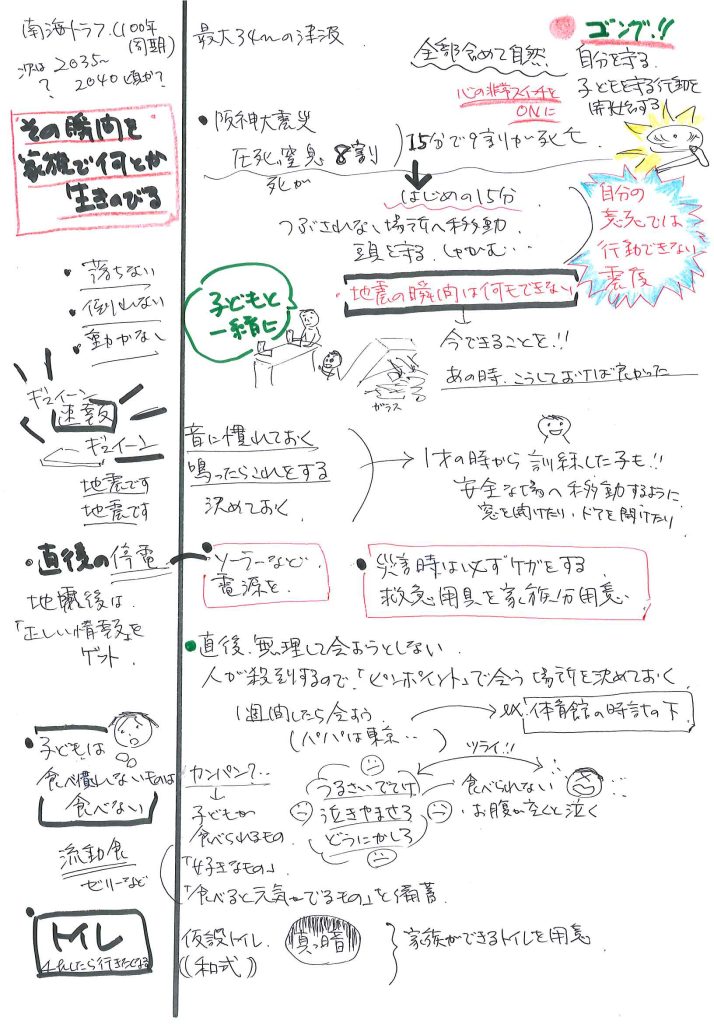 南海トラフ(100年
周期)
次は2035~
? 2040頃か?
その瞬間を
家族で何とか
生きのびる
・落ちない
・倒れない
・動かない
ギュイーン
速報
ギュイーン
地震です
地震です
・直後の停電
地震後は
「正しい情報」を
ゲット
・子どもは
食べ慣れないものは
食べない
流動食
ゼリーなど
・トイレ
したら行きたくなる
最大34mの津波
全部含めて自然
心の非常スイッチを
ONに
ゴング!!
自分を守る
子どもを守る行動を
開始する!
・阪神大震災
圧死、窒息 8割
死が
15分で9割が死亡
はじめの15分
つぶされない場所へ移動
頭を守る、しゃがむ…
自分の
意志では
行動できない
震度
・地震の瞬間は何もできない
子どもと
一緒に
今できることを!!
あの時、こうしておけば良かった
ガラス
音に慣れておく
鳴ったらこれをする
決めておく
1才の時から訓練した子も!!
安全な場へ移動するように
窓を開けたり・ドアを開けたり
・ソーラーなど
電源を
・災害時は必ずケガをする
救急用具を家族分用意
・直後、無理して会おうとしない
人が殺到するので、「ピンポイント」で会う場所を決めておく
1週間したら会おう
(パパは東京・・)
ex.体育館の時計の下
カンパン?・・
子どもが
食べられるもの
「好きなもの」
「食べると元気がでるもの」を備蓄
うるさいでてけ
泣きやませろ
どうにかしろ
ツライ!!
・食べられない
・お腹が空くと泣く
仮設トイレ
(和式)
真っ暗
家族ができるトイレを用意